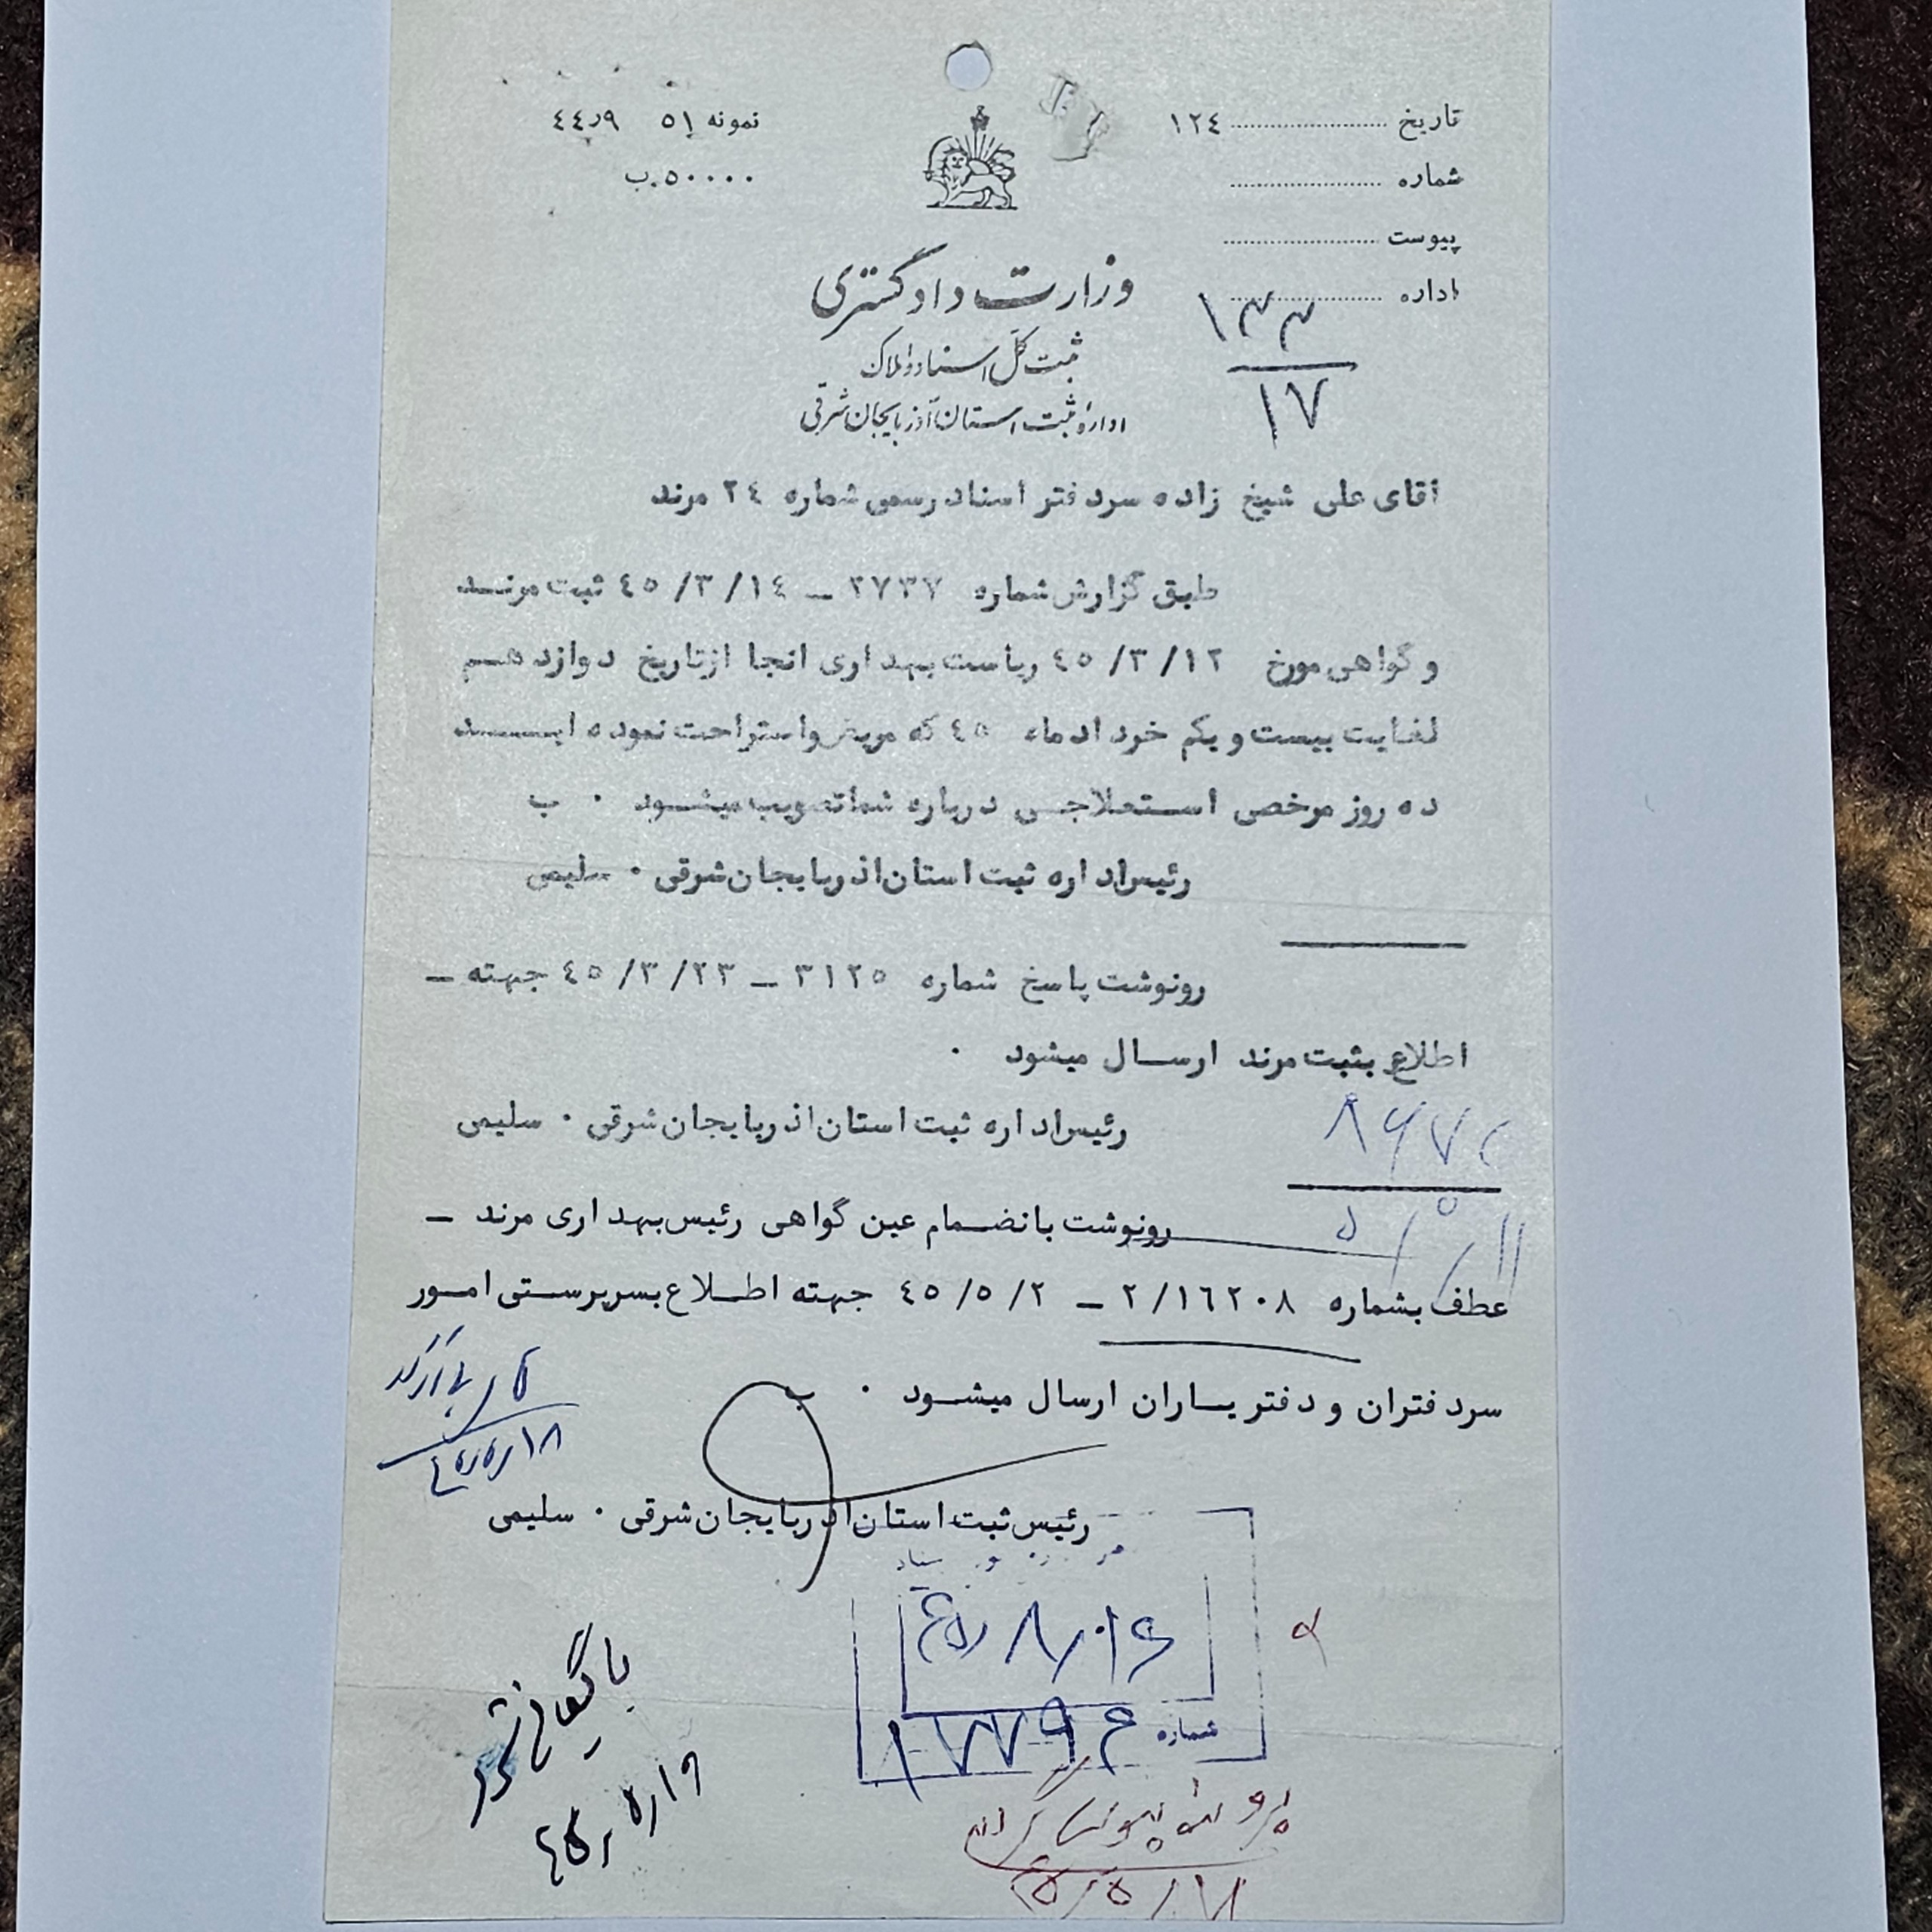 تاریخ ۱۲٤
شماره
پیوست
اداره
نمونه ٥١ ٤٤ر۹
٥۰۰۰۰.ب
وزارت دادگستری
ثبت کل اسناد و املاک
اداره ثبت استان آذربایجان شرقی
۱۳۳
۱۷
اقای علی شیخ زاده سردفتر اسناد رسمی شماره ۲٤ مرند
طبق گزارش شماره ۲۷۳۷ ـ ٤٥/۳/۱٤ ثبت مرنـد
و گواهی مورخ ٤٥/۳/۱۲ ریاست بهداری انجا ازتاریخ دوازدهـم
لغایت بیست و یکم خرداد ماه ٤٥ که مریض واستراحت نموده ایـد
ده روز مرخصی استعلاجی درباره شما تصویب میشود . ب
رئیس اداره ثبت استان اذربایجان شرقی . سلیمی
رونوشت پاسخ شماره ۳۱۲٥ ـ ٤٥/۳/۲۳ جهته ـ
اطلاع بثبت مرند ارسال میشود .
رئیس اداره ثبت استان اذربایجان شرقی . سلیمی
رونوشت بانضمام عین گواهی رئیس بهداری مرند ـ
عطف بشماره ۲/۱٦۲۰۸ ـ ٤٥/٥/۲ جهته اطلاع بسرپرستی امور
سردفتران و دفتریاران ارسال میشود . ب
رئیس ثبت استان اذربایجان شرقی . سلیمی
شماره
بایگانی شود